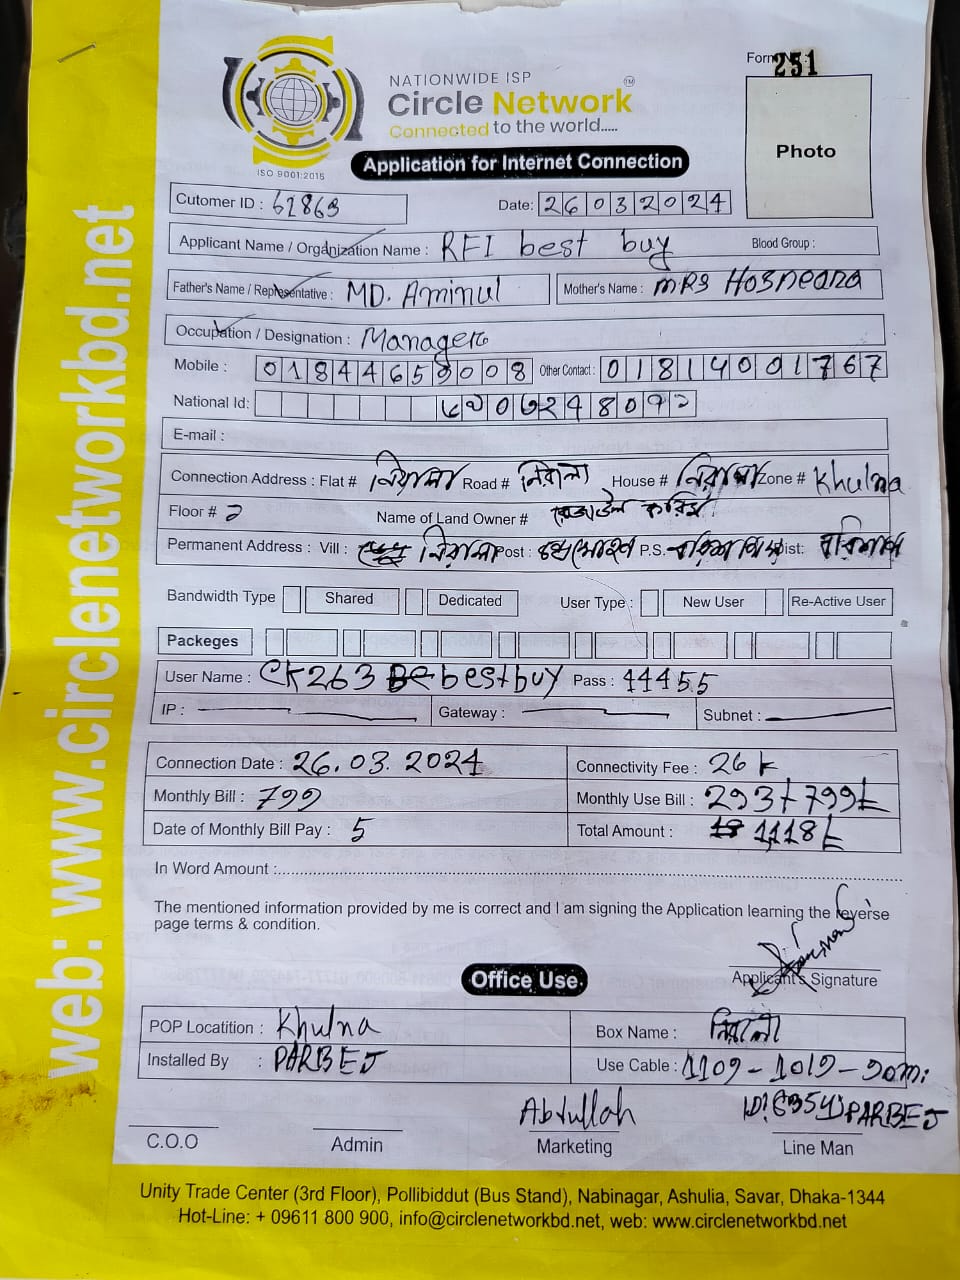 Form 251
NATIONWIDE ISP
Circle Network
TM
Connected to the world.....
ISO 9001:2015
Application for Internet Connection
Photo
Cutomer ID : 61863 Date: 26032024
Applicant Name / Organization Name : RFI best buy Blood Group :
Father's Name / Representative : MD. Aminul Mother's Name : MRS Hosneara
Occupation / Designation : Manager
Mobile : 01844659008 Other Contact : 01814001767
National Id:
E-mail :
Connection Address : Flat # নিরালা Road # নিরালা House # নিরালা Zone # Khulna
Floor # 2 Name of Land Owner # রেজাউল করিম
Permanent Address : Vill : নিরালা Post : P.S. Dist: বরিশাল
Bandwidth Type Shared Dedicated User Type : New User Re-Active User
Packeges
User Name : CK263 bestbuy Pass : 11455
IP : Gateway : Subnet :
Connection Date : 26.03.2024 Connectivity Fee : 26
Monthly Bill : 799 Monthly Use Bill : 293+799
Date of Monthly Bill Pay : 5 Total Amount : 1118
In Word Amount :
The mentioned information provided by me is correct and I am signing the Application learning the reverse
page terms & condition.
Applicant's Signature
Office Use
POP Locatition : Khulna Box Name : নিরালা
Installed By : PARBEJ Use Cable : 1109-1019-90m
Abdullah PARBEJ
C.O.O Admin Marketing Line Man
Unity Trade Center (3rd Floor), Pollibiddut (Bus Stand), Nabinagar, Ashulia, Savar, Dhaka-1344
Hot-Line: + 09611 800 900, info@circlenetworkbd.net, web: www.circlenetworkbd.net
web: www.circlenetworkbd.net